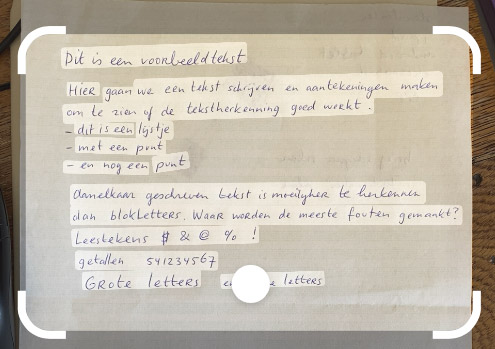 Dit is een voorbeeldtekst
Hier gaan we een tekst schrijven en aantekeningen maken
om te zien of de tekstherkenning goed werkt.
- dit is een lijstje
- met een punt
- en nog een punt
Aanelkaar geschreven tekst is moeilijker te herkennen
dan blokletters. Waar worden de meeste fouten gemaakt?
Leestekens $ & @ % !
getallen 541234567
Grote letters letters